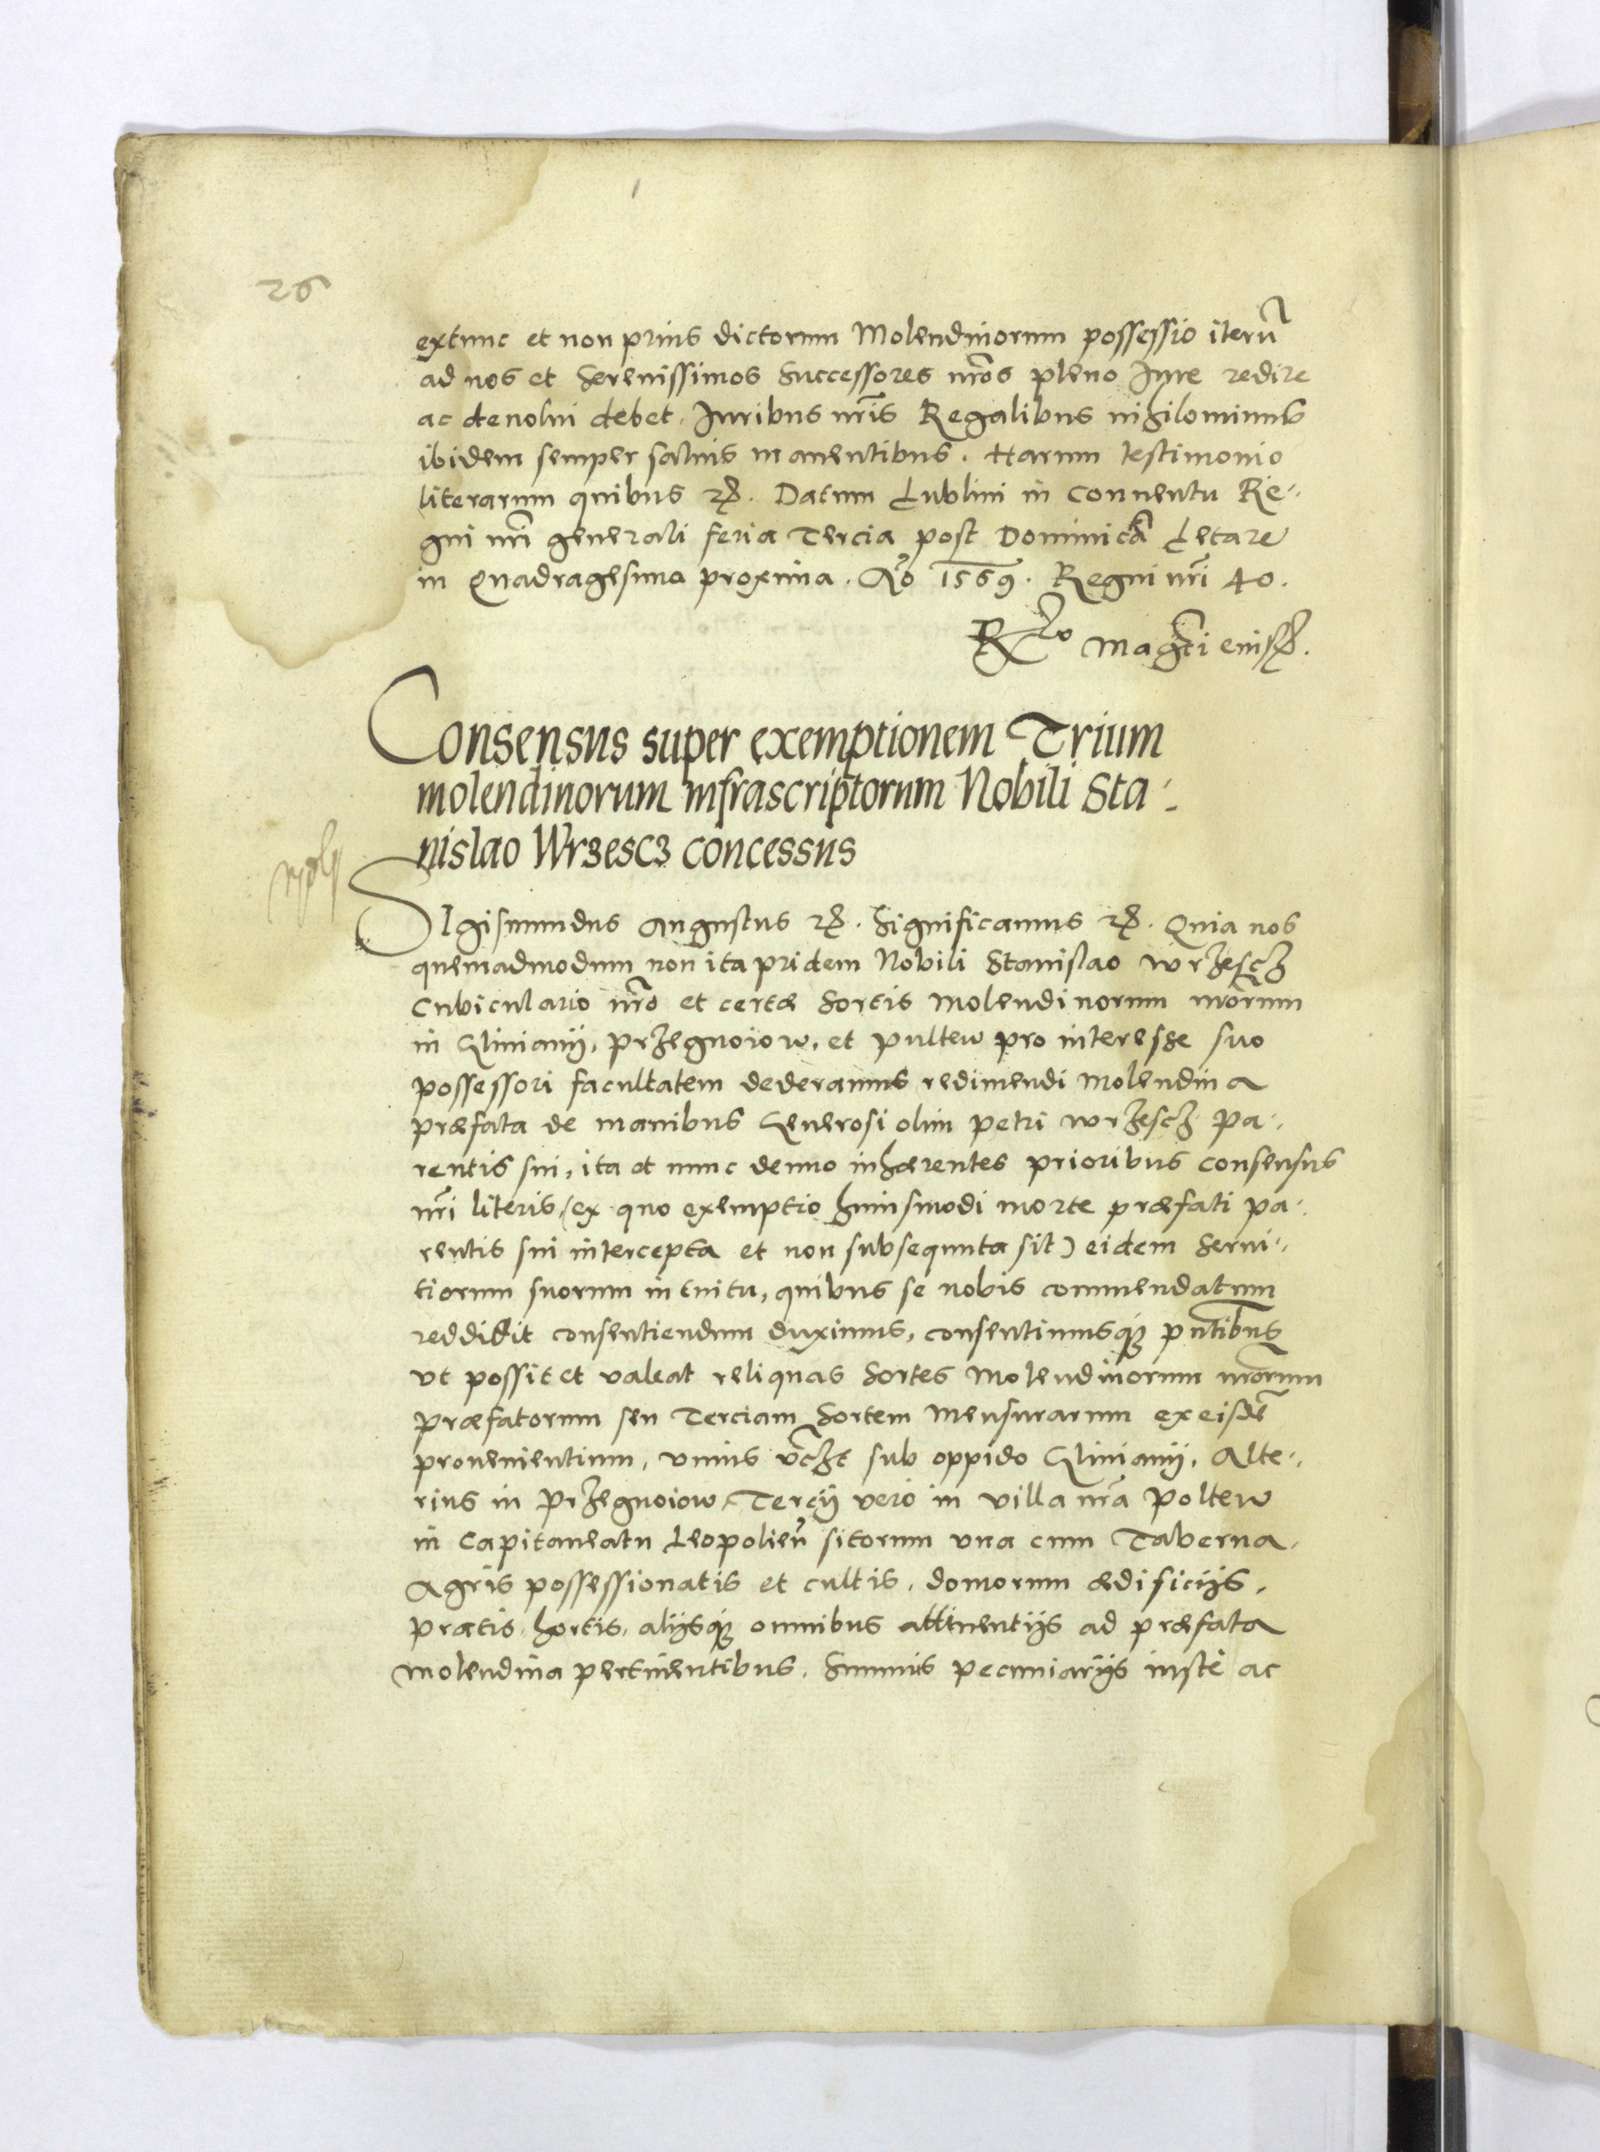 26
extunc et non prius dictorum Molendinorum possessio iterū
ad nos et Serenissimos Successores nr̃os pleno Jure redire
ac deuolui debet. Juribus nr̃is Regalibus nihilominus
ibidem semper saluis manentibus. Harum testimonio
literarum quibus etc. Datum Lublini in Conuentu Re-
gni nr̃i generali feria Tercia post Dominicã Letare
in Quadragesima proxima. Aº 1569. Regni nr̃i 40.
Rlº Magci eiusdẽ.
Consensus super exemptionem Trium
molendinorum infrascriptorum Nobili Sta-
nislao Wrzescz concessus
SIgismundus Augustus etc. Significamus etc. Quia nos
quemadmodum non ita pridem Nobili Stanislao Wrzescz
Cubiculario nr̃o et certæ Sortis Molendinorum nr̃orum
in Glinianij, Przegnoiow, et Pultew pro interesse suo
possessori facultatem dederamus redimendi Molendina
præfata de manibus Generosi olim Petri Wrzescz Pa-
rentis sui, ita et nunc denuo inhærentes prioribus consensus
nr̃i literis, (ex quo exemptio huiusmodi morte præfati Pa-
rentis sui intercepta et non subsequuta sit) eidem Serui-
tiorum suorum intuitu, quibus se nobis commendatum
reddidit consentiendum duximus, consentimusq3 pñtibus
vt possit et valeat reliquas Sortes Molendinorum nr̃orum
præfatorum seu Terciam Sortem Mensurarum ex eisdẽ
prouenientium, vnius vczt sub oppido Glinianij, Alte-
rius in Przegnoiow, Tercij vero in villa nr̃a Poltew
in Capitaneatu Leopolien̄ sitorum vna cum Taberna,
Agris possessionatis et cultis, domorum ædificijs,
Pratis, hortis, alijsq3 omnibus attinentijs ad præfata
Molendina pertinentibus, Summis pecuniarijs iuste ac